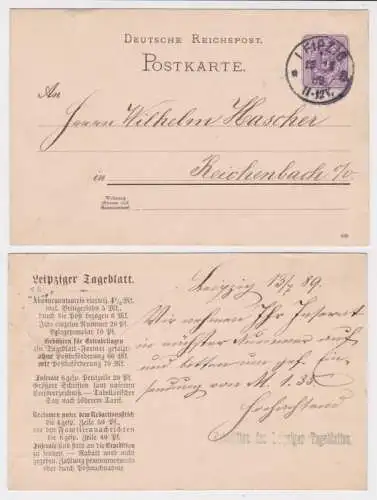 Deutsche Reichspost.
Postkarte.
LEIPZIG
An
Herrn Wilhelm Hascher
in
Reichenbach i/v.
Leipziger Tageblatt.
Abonnementspreis viertelj. 4½ Mk.
incl. Bringerlohn 5 Mk.,
durch die Post bezogen 6 Mk.
Jede einzelne Nummer 20 Pf.
Belegexemplar 10 Pf.
Gebühren für Extrabeilagen
(in Tageblatt-Format gefalzt)
ohne Postbeförderung 60 Mk.
mit Postbeförderung 70 Mk.
Inserate 6gesp. Petitzeile 20 Pf.
Größere Schriften laut unserem
Preisverzeichniß. — Tabellarischer
Satz nach höherem Tarif.
Reclamen unter dem Redactionsstrich
die 4gesp. Zeile 50 Pf., vor
den Familiennachrichten
die 6gesp. Zeile 40 Pf.
Inserate sind stets an die Expedition
zu senden. — Rabatt wird nicht
gegeben. Zahlung praenumerando
oder durch Postnachnahme
Leipzig 13/7 89.
Wir nehmen Ihr Inserat
in nächster Nummer auf
und bitten um gef. Ein-
sendung von M. 1.35
Hochachtend
Expedition des Leipziger Tageblattes.